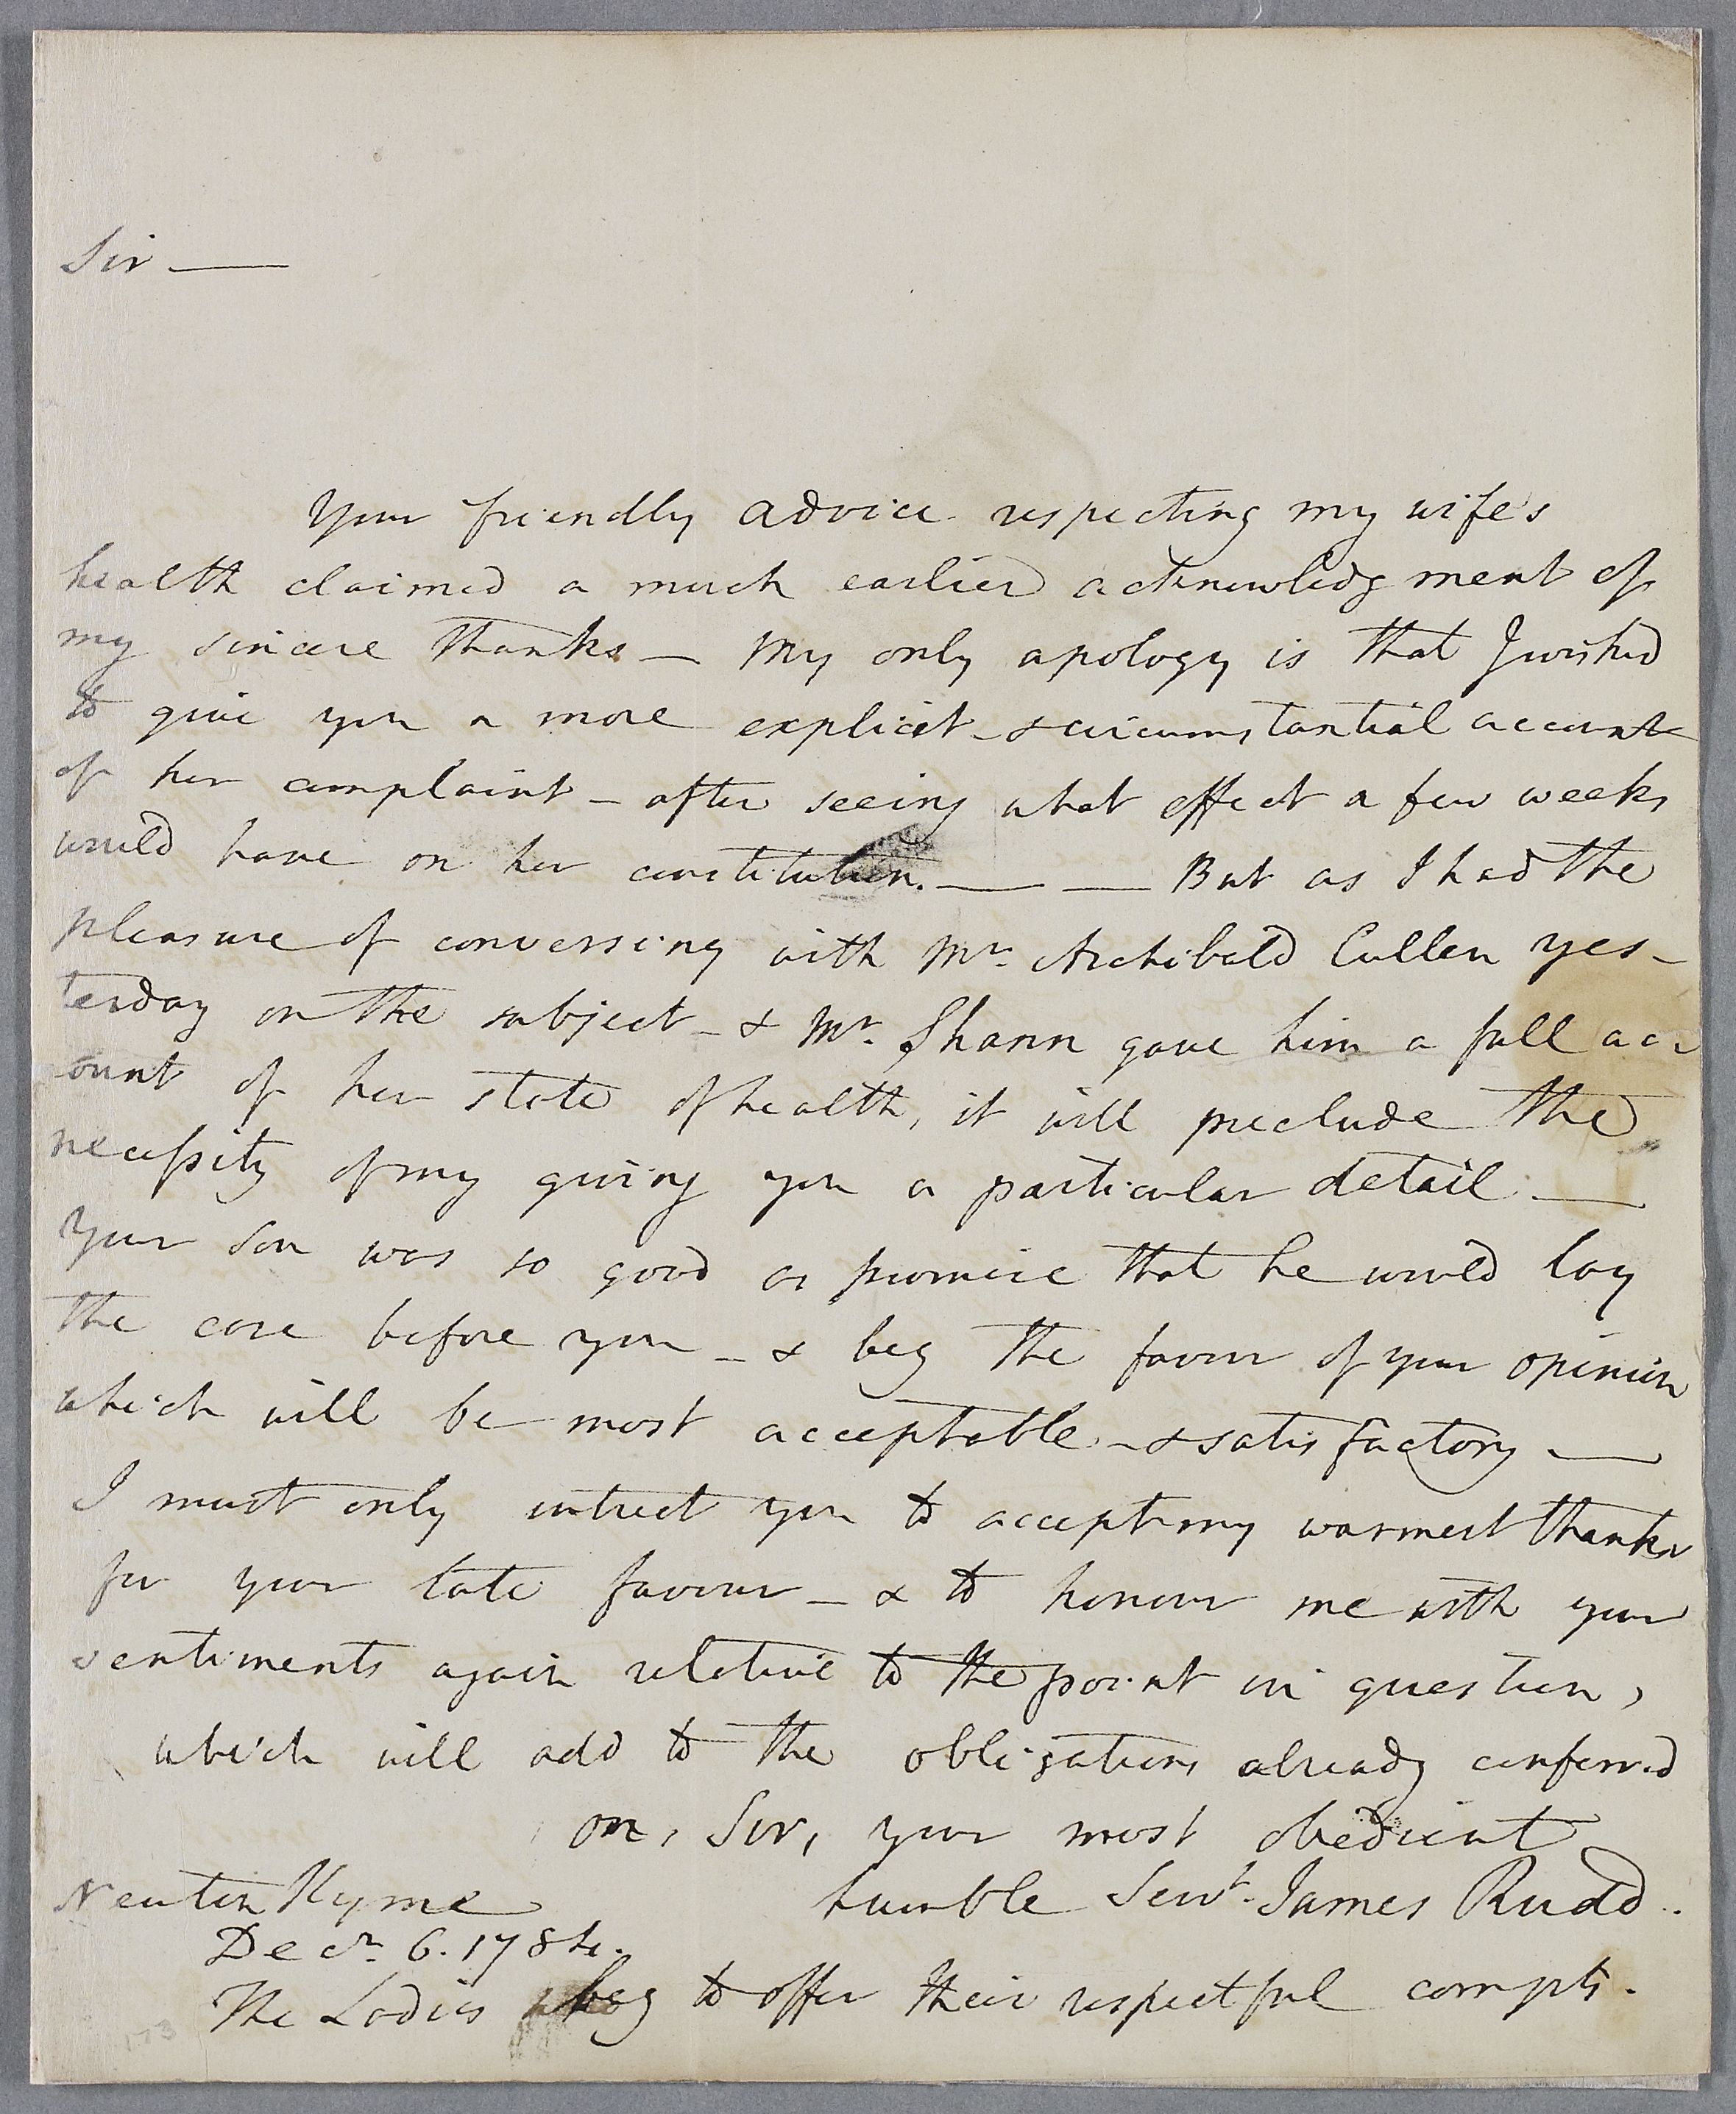 Sir —
Your friendly advice respecting my wife's
health claimed a much earlier acknowledgment of
my sincere thanks — My only apology is that I wished
to give you a more explicit & circumstantial account
of her complaint — after seeing what effect a few weeks
would have on her constitution. — — But as I had the
pleasure of conversing with Mr. Archibald Cullen yes-
terday on the subject — & Mr. Shann gave him a full acc
ount of her state of health, it will preclude the
necessity of my giving you a particular detail —
Your son was so good as promise that he would lay
the case before you — & beg the favour of your opinion
which will be most acceptable — & satisfactory —
I must only intreat you to accept my warmest thanks
for your late favour — & to honour me with your
sentiments again relative to the point in question,
which will add to the obligations already conferred
on, Sir, your most obedient
humble Servt. James Rudd.
Newton Kyme
Decr. 6. 1784.
The Ladies beg to offer their respectful compts.
173